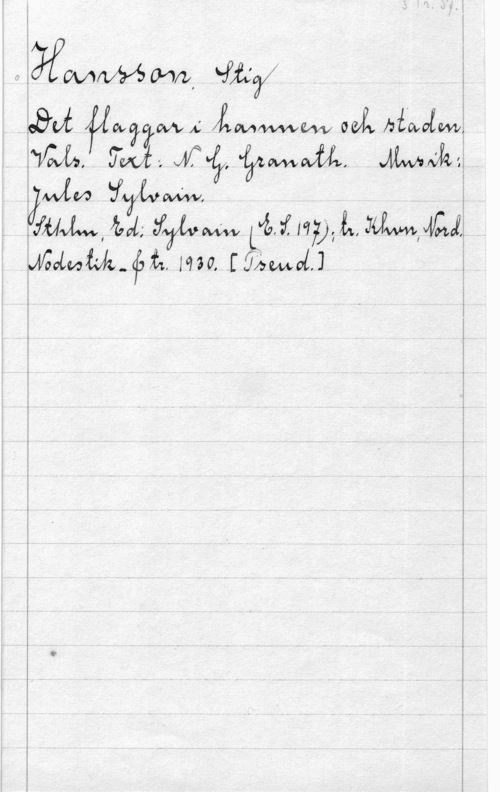 Hansson, Stig
Det flaggar i hamnen och staden.
Vals. Text: N. G. Granath. Musik:
Jules Sylvain.
Sthlm, Ed. Sylvain (E.S. 197); tr. Khvn, Nord.
Nodestik- & tr. 1930. [Pseud.]